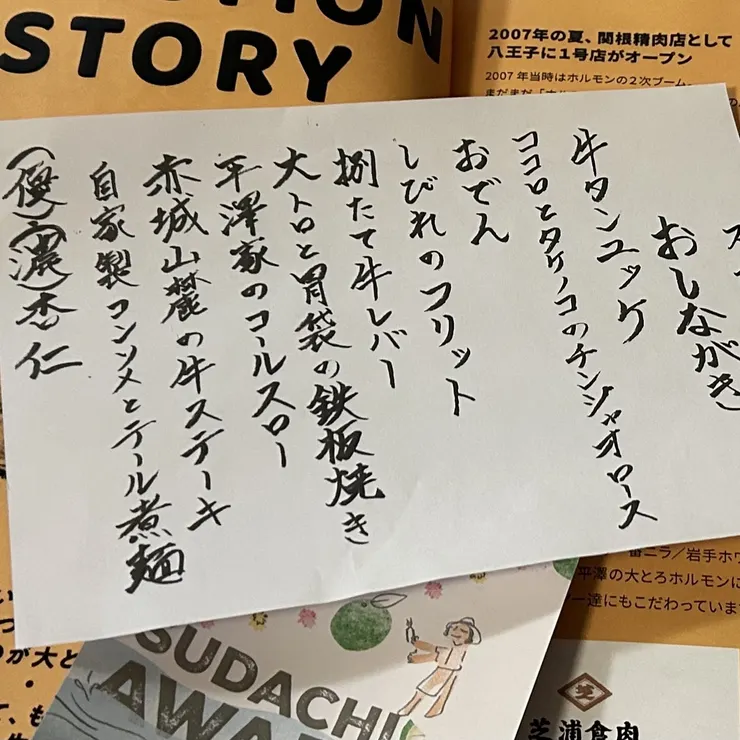 STORY
2007年の夏、関根精肉店として
八王子に1号店がオープン
2007年当時はホルモンの2次ブーム。
おしながき
牛タンユッケ
ココロとタケノコのチンジャオロース
おでん
しびれのフリット
捌たて牛レバー
大トロと胃袋の鉄板焼き
平澤家のコールスロー
赤城山麓の牛ステーキ
自家製コンソメとテール煮麺
(優)(濃)杏仁
番ニラ/岩手ホワ
平澤の大とろホルモンに
ー達にもこだわっています
SUDACHI
芝
芝浦食肉